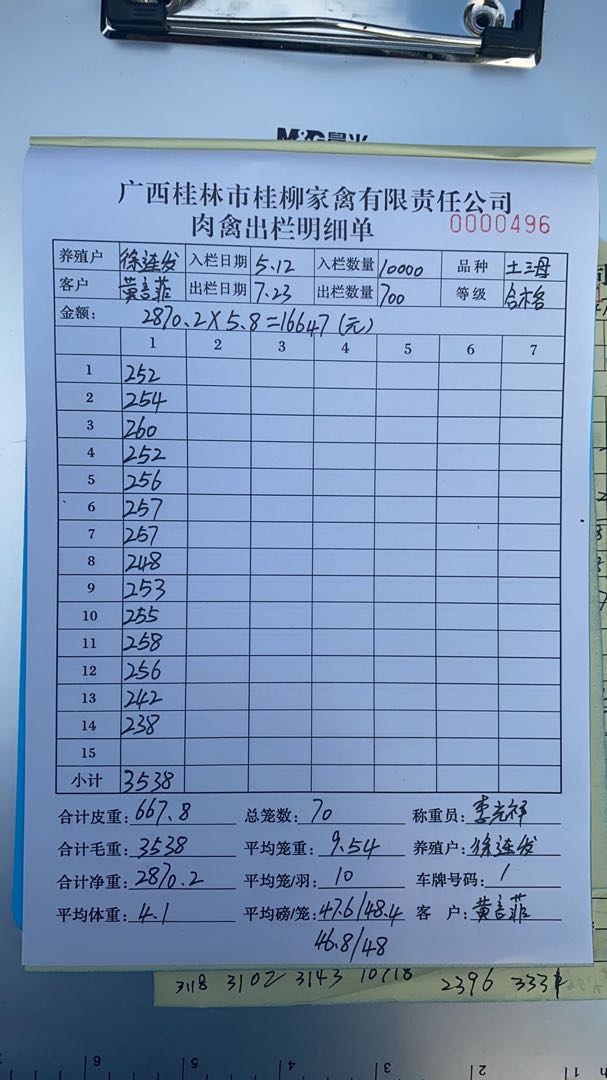 M&G晨光
广西桂林市桂柳家禽有限责任公司
肉禽出栏明细单 0000496
养殖户 徐连发 入栏日期 5.12 入栏数量 10000 品种 土三母
客户 黄言菲 出栏日期 7.23 出栏数量 700 等级 合格
金额: 2870.2×5.8=16647(元)
1 2 3 4 5 6 7
1 252
2 254
3 260
4 252
5 256
6 257
7 257
8 248
9 253
10 255
11 258
12 256
13 242
14 238
15
小计 3538
合计皮重: 667.8 总笼数: 70 称重员: 李光祥
合计毛重: 3538 平均笼重: 9.54 养殖户: 徐连发
合计净重: 2870.2 平均笼/羽: 10 车牌号码: /
平均体重: 4.1 平均磅/笼: 47.6/48.4 客 户: 黄言菲
46.8/48
3118 3102 3143 10718 2396 333
6 5 4 3 2 1